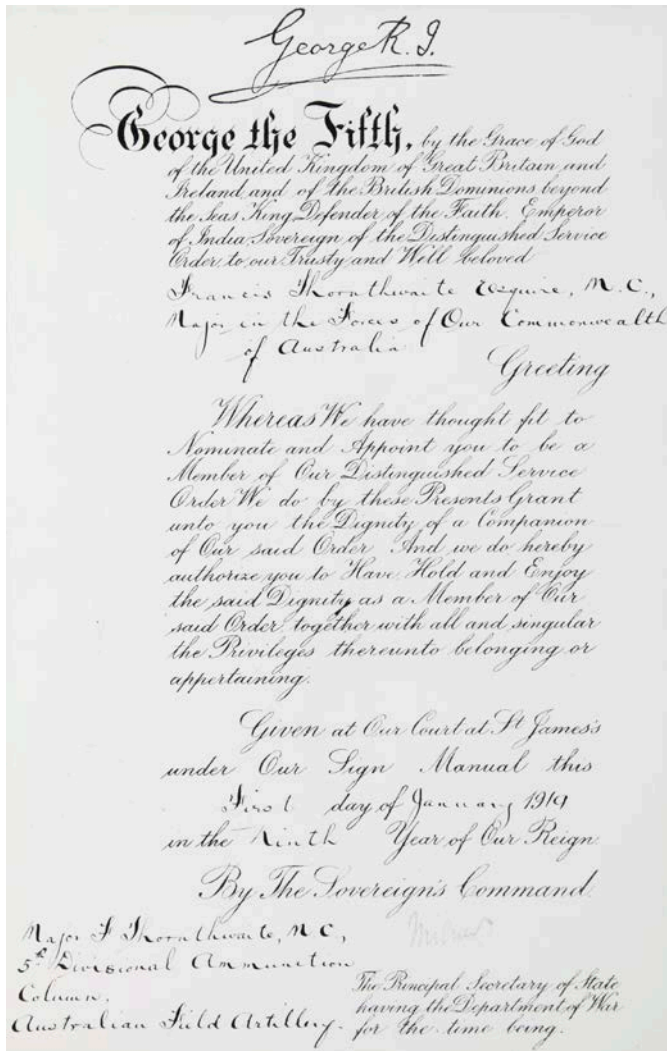 George R.I.
George the Fifth, by the Grace of God
of the United Kingdom of Great Britain and
Ireland and of the British Dominions beyond
the Seas King Defender of the Faith. Emperor
of India Sovereign of the Distinguished Service
Order to our Trusty and Will beloved
Francis Thornthwaite Esquire, M.C.,
Major in the Forces of Our Commonwealth
of Australia
Greeting
Whereas We have thought fit to
Nominate and Appoint you to be a
Member of Our Distinguished Service
Order We do by these Presents Grant
unto you the Dignity of a Companion
of Our said Order And we do hereby
authorize you to Have Hold and Enjoy
the said Dignity as a Member of Our
said Order, together with all and singular
the Privileges thereunto belonging or
appertaining.
Given at Our Court at St James's
under Our Sign Manual this
First day of January 1919
in the Ninth Year of Our Reign.
By The Sovereign's Command.
Major F Thornthwaite, M C,
5th Divisional Ammunition
Column.
Australian Field Artillery.
The Principal Secretary of State
having the Department of War
for the time being.